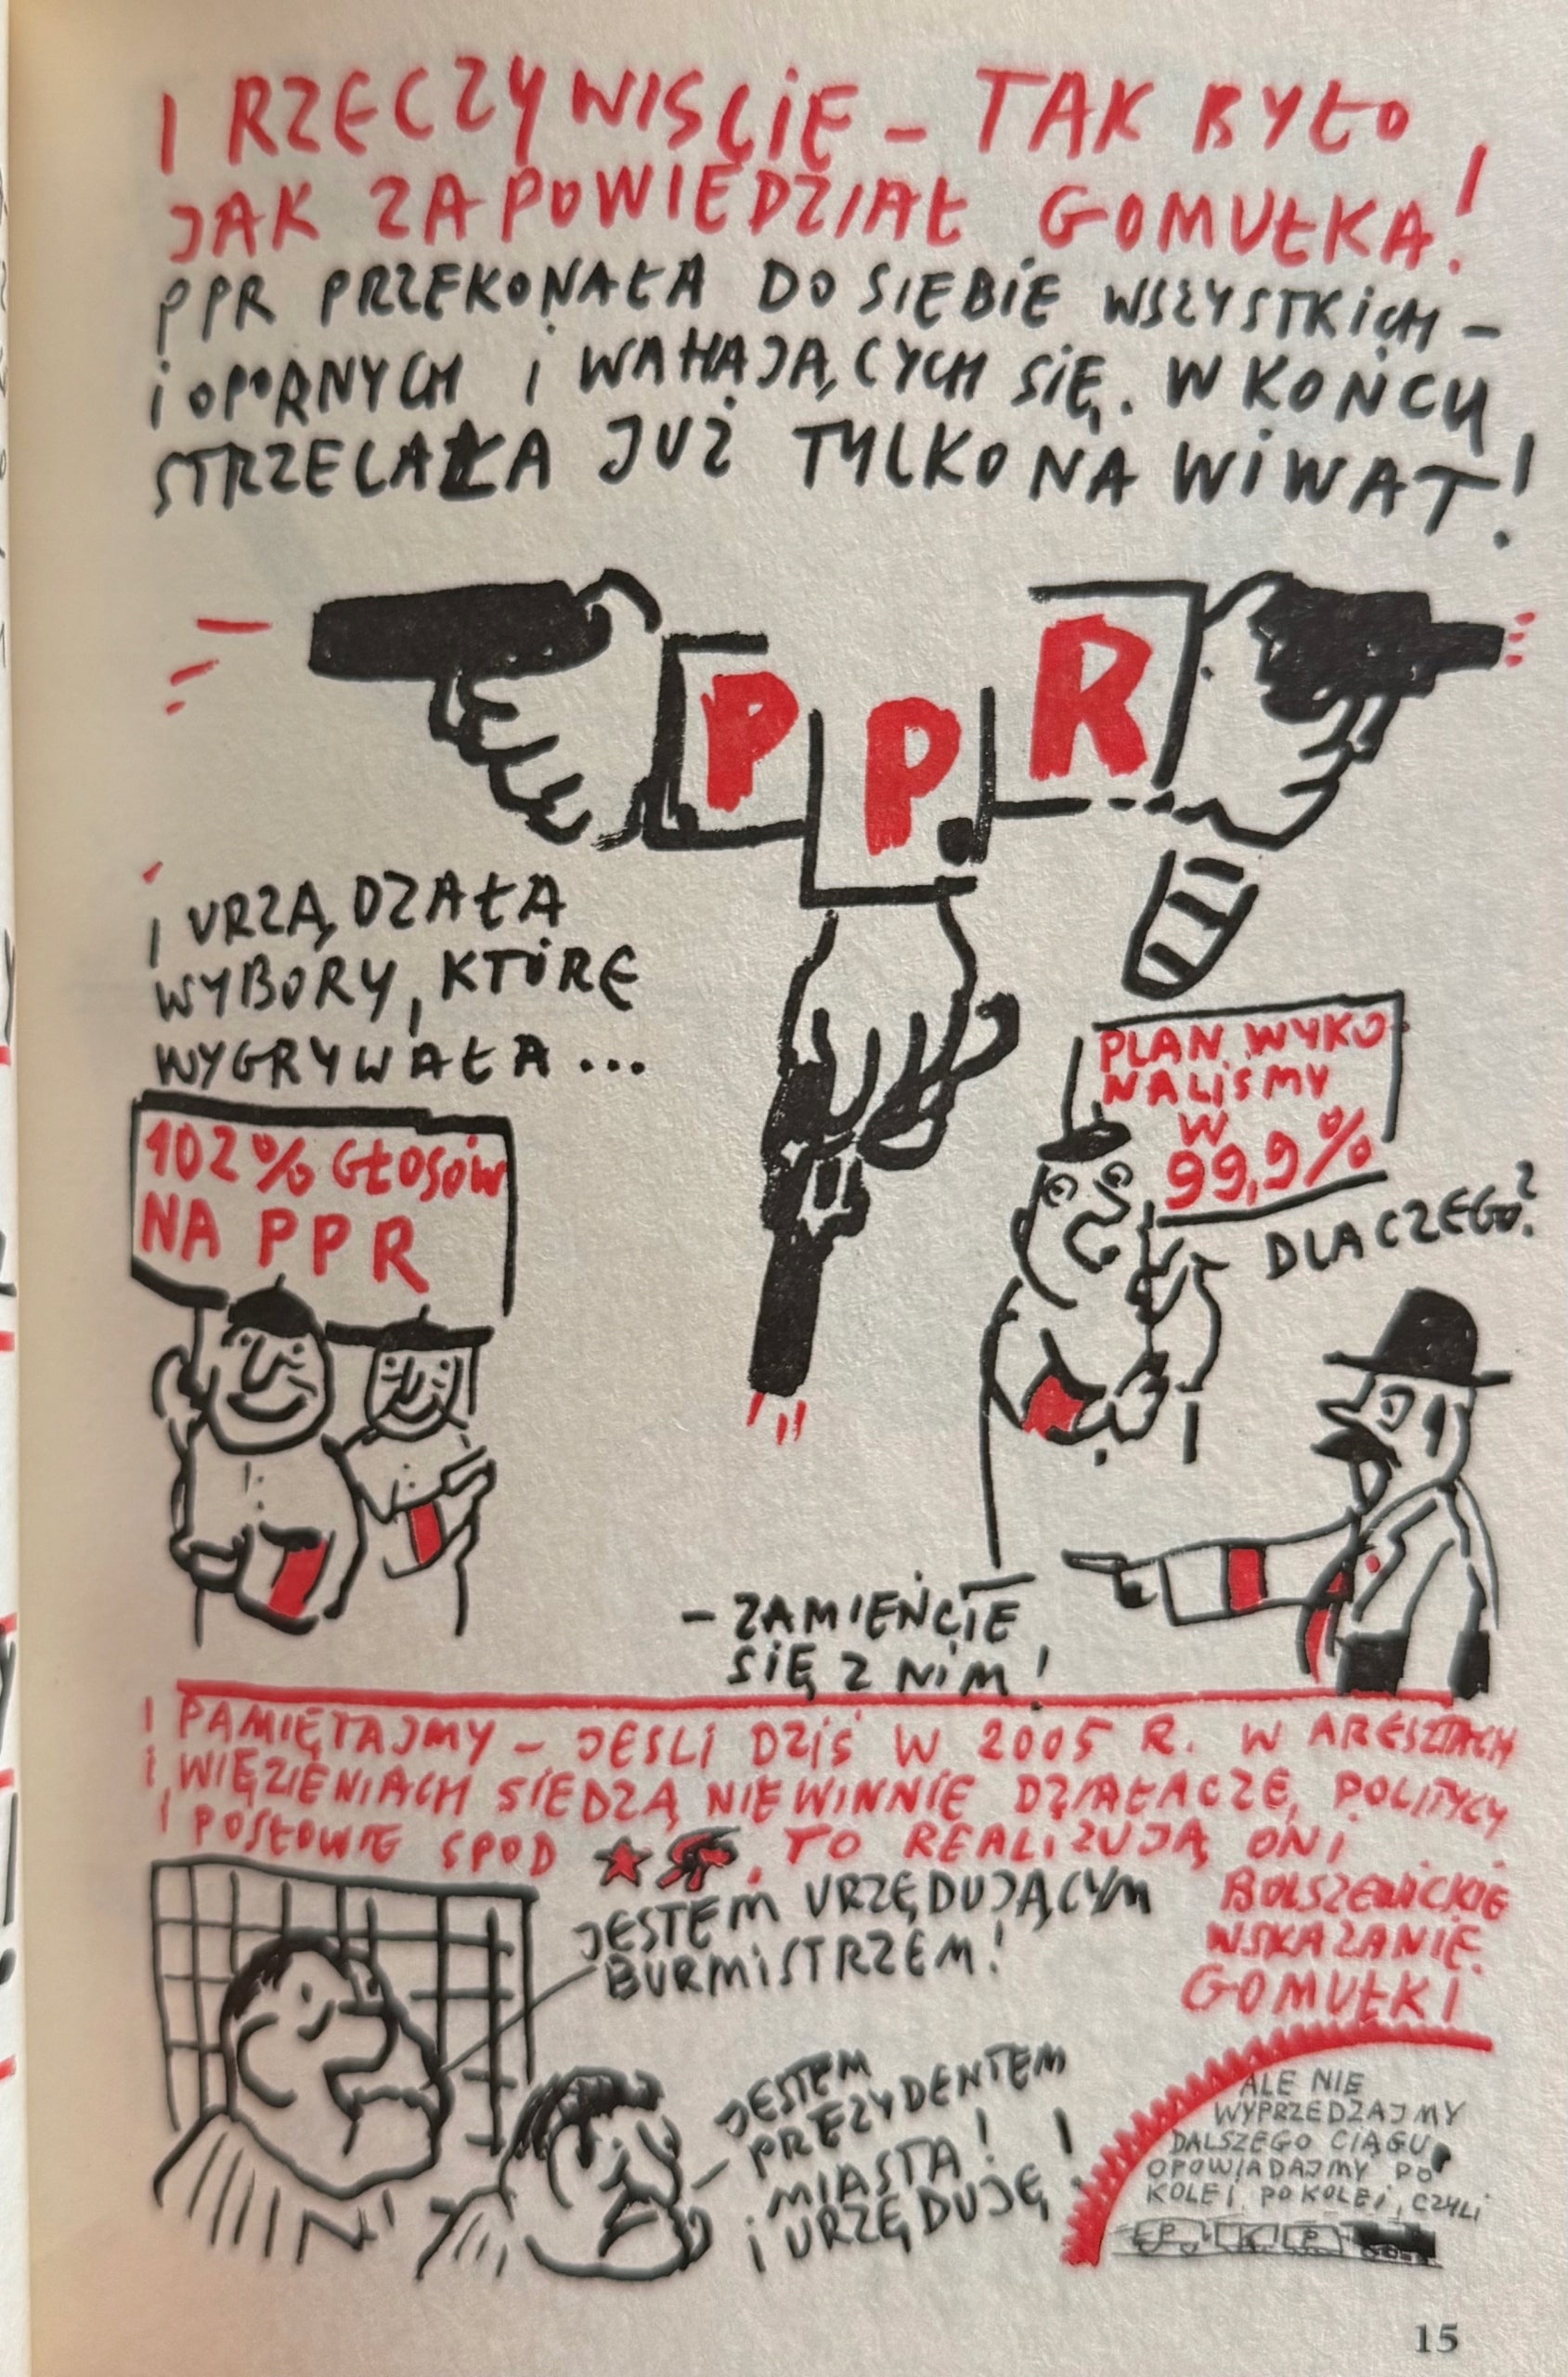 I RZECZYWIŚCIE – TAK BYŁO
JAK ZAPOWIEDZIAŁ GOMUŁKA!
PPR PRZEKONAŁA DO SIEBIE WSZYSTKICH –
I OPORNYCH I WAHAJĄCYCH SIĘ. W KOŃCU
STRZELAŁA JUŻ TYLKO NA WIWAT!
PPR
I URZĄDZAŁA
WYBORY, KTÓRE
WYGRYWAŁA...
102% GŁOSÓW
NA PPR
PLAN WYKO
NALIŚMY
W
99,9%
DLACZEGO?
– ZAMIEŃCIE
SIĘ Z NIM!
I PAMIĘTAJMY – JEŚLI DZIŚ W 2005 R. W ARESZTACH
I WIĘZIENIACH SIEDZĄ NIEWINNIE DZIAŁACZE, POLITYCY
I POSŁOWIE SPOD ★☭, TO REALIZUJĄ ONI
BOLSZEWICKIE
WSKAZANIE
GOMUŁKI
JESTEM URZĘDUJĄCYM
BURMISTRZEM!
JESTEM
PREZYDENTEM
MIASTA!
I URZĘDUJĘ!
ALE NIE
WYPRZEDZAJMY
DALSZEGO CIĄGU,
OPOWIADAJMY PO
KOLEI. PO KOLEI, CZYLI
P K P
15